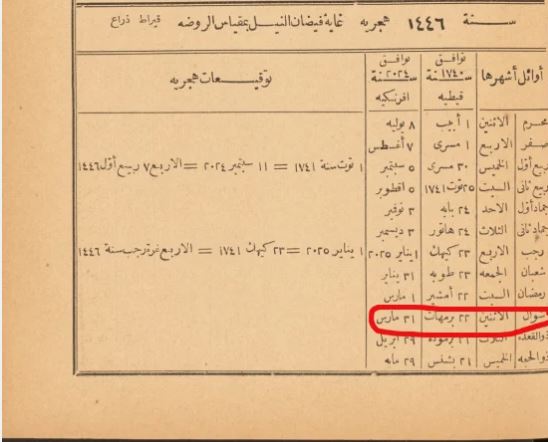 سـنة ١٤٤٦ هجريه غاية فيضان النيـل بمقياس الروضه قيراط ذراع
أوائل أشهرها توافـق سـنة ١٧٤٠ قبطيه توافـق سـنة ٢٠٢٤ افرنكيه توقيـعات هجريه
محـرم الاثنين ١ أبيب ٨ يوليه
صفـر الاربع ١ مسرى ٧ أغسطس
ربيع أول الخميس ٣٠ مسرى ٥ سبتمبر ١ توت سنة ١٧٤١ = ١١ سبتمبر ٢٠٢٤ = الاربع ٧ ربيع أول ١٤٤٦
ربيع ثانى السبت ٢٥ توت ١٧٤١ ٥ اقطوبر
جماد أول الاحد ٢٤ بابه ٣ نوفبر
جماد ثانى الثلاث ٢٤ هاتور ٣ ديسمبر
رجب الاربع ٢٣ كيهك ١ يناير ٢٠٢٥ ١ يناير ٢٠٢٥ = ٢٣ كيهك ١٧٤١ = الاربع غرة رجب سنة ١٤٤٦
شعبان الجمعه ٢٣ طوبه ٣١ يناير
رمضان السبت ٢٢ أمشير ١ مارس
شوال الاثنين ٢٢ برمهات ٣١ مارس
ذوالقعده الثلاث ٢١ برموده ٢٩ ابريل
ذوالحجه الخميس ٢١ بشنس ٢٩ مايه